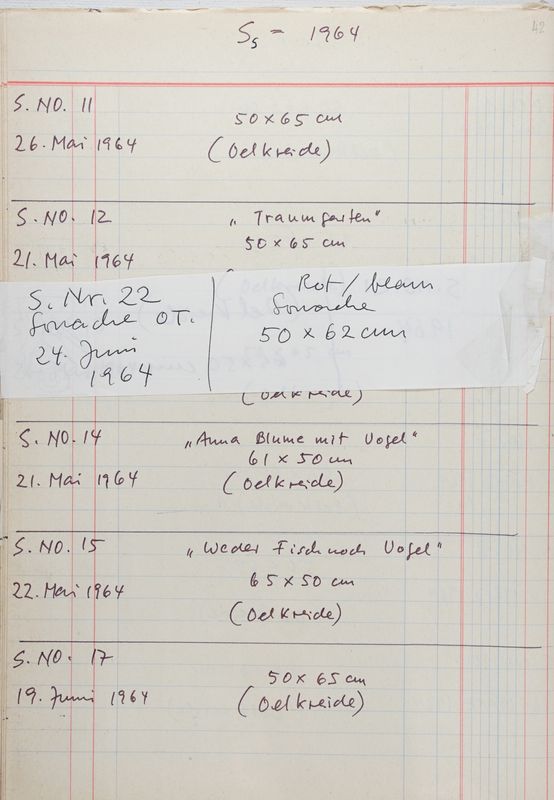 42
S₅ = 1964
S. NO. 11
50 x 65 cm
26. Mai 1964 (Oelkreide)
S. NO. 12 „Traumgarten"
50 x 65 cm
21. Mai 1964
S. Nr. 22
Gouache O.T.
24. Juni
1964
Rot/blau
Gouache
50 x 62 cm
(Oelkreide)
S. NO. 14 „Anna Blume mit Vogel"
61 x 50 cm
21. Mai 1964 (Oelkreide)
S. NO. 15 „Weder Fisch noch Vogel"
22. Mai 1964 65 x 50 cm
(Oelkreide)
S. NO. 17
50 x 65 cm
19. Juni 1964 (Oelkreide)